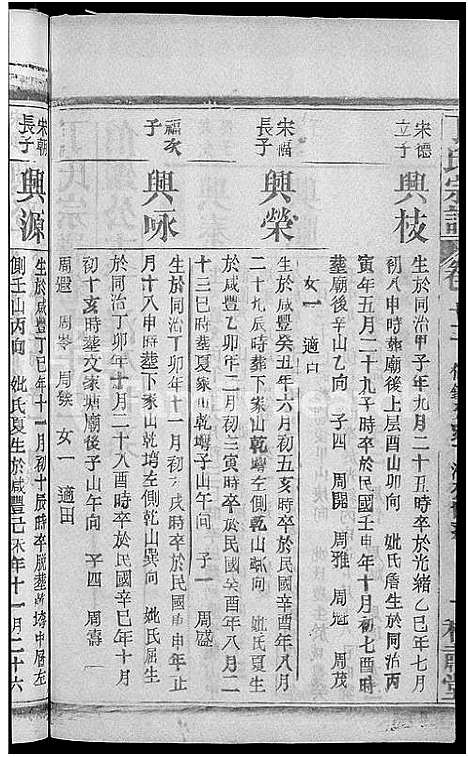 宋德立子
興枝
生於同治甲子年九月二十丑時卒於光緒乙巳年七月
初八申時葬廟後上層酉山卯向 妣氏詹生於同治丙
寅年五月二十九亥時卒於民國壬申年十月初七酉時
葬廟後辛山乙向 子四 周開 周雅 周冠 周茂
女一 適白
宋福長子
興榮
生於咸豐癸丑年六月初五亥時卒於民國辛酉年八月
二十九辰時葬下家山乾塆左側乾山巽向 妣氏
於咸豐乙卯年二月初三寅時卒於民國癸酉年八月二
十三巳時葬夏家山乾塆子山午向 子一 周盛
福次子
興咏
生於同治丁卯年十月初
月十八申時葬下家山乾塆左側乾山巽向 妣氏屈生
於同治丁卯年十月二十八酉時卒於民國辛巳年
初十亥時葬文家塘廟後子山午向 子四 周壽
周遐 周岑 周矦 女一 適田
宋朝長子
興源
生於咸豐丁巳年十一月初十辰時卒 葬 塆中層左
側壬山丙向 妣氏夏生於咸豐己未年十一月二十六